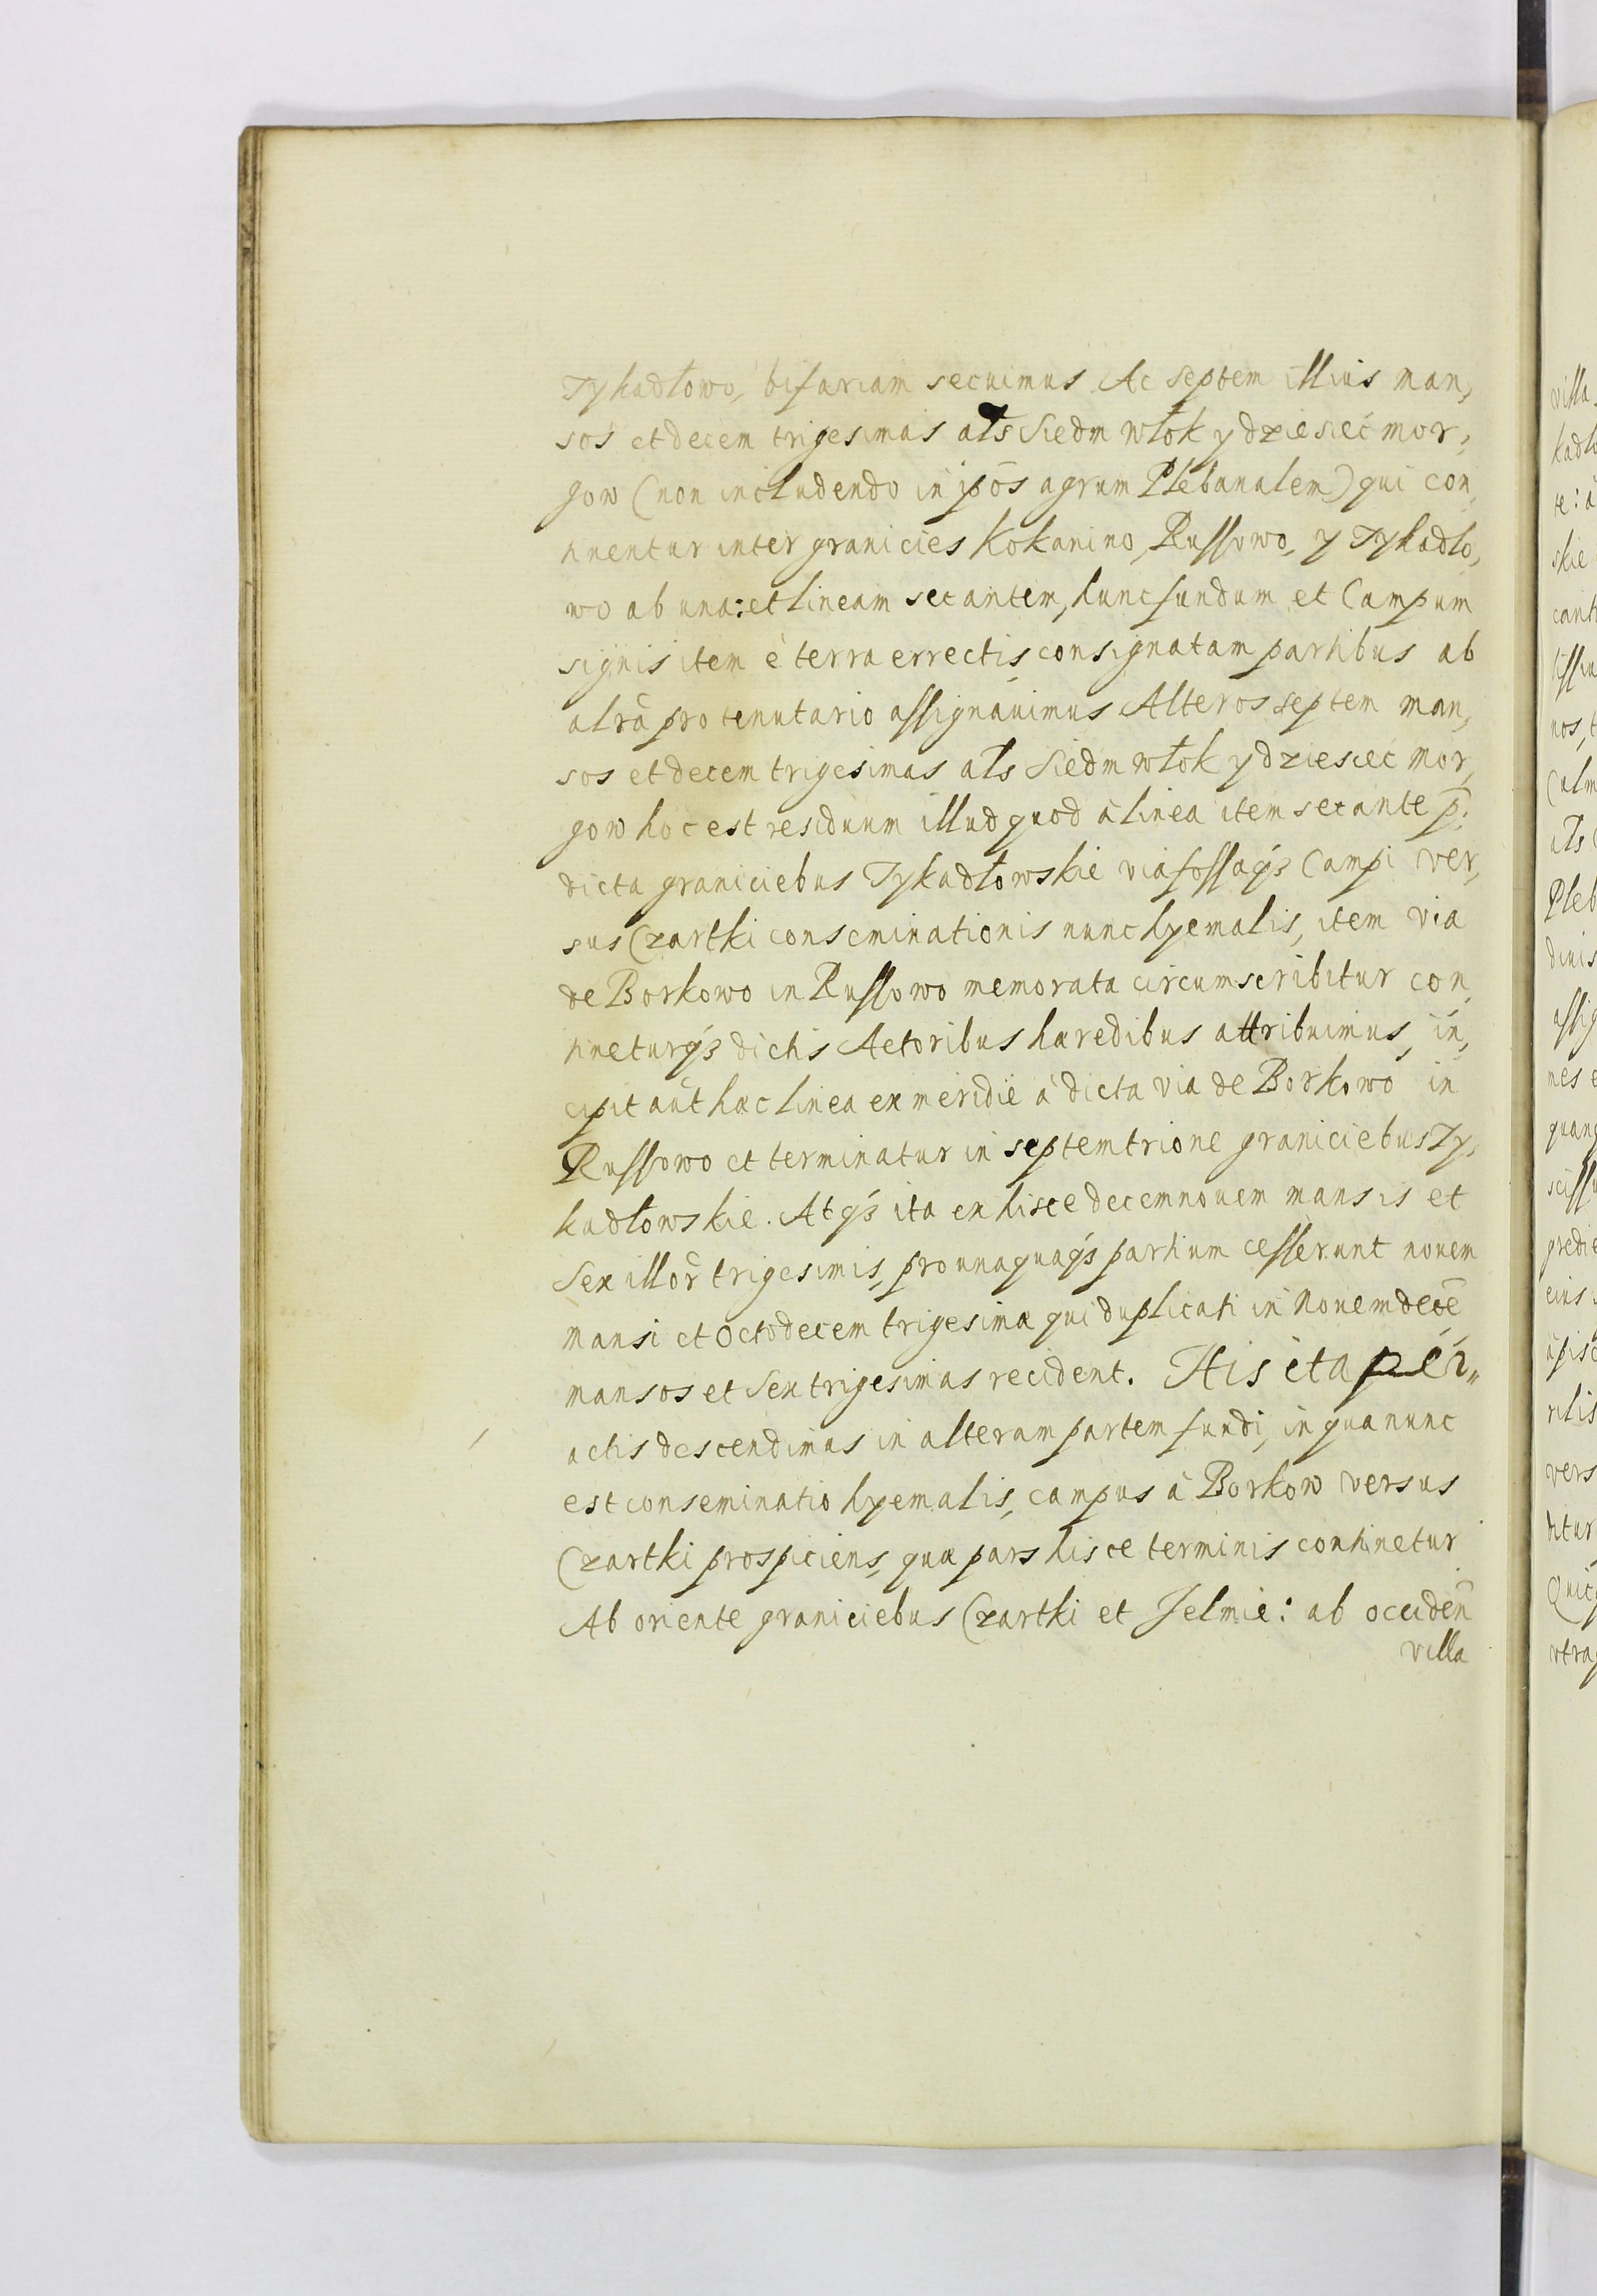 Tykadłowo, bifariam secuimus Ac septem illius man,
sos et decem trigesimas als Siedm włok y dziesięć mor,
gow (non includendo in ipōs agrum Plebanalem) qui con,
tinentur inter granicies Kokanino, Russowo, y Tykadło,
wo ab una: et lineam secantem, hunc fundum et Campum
signis item è terra errectis, consignatam partibus ab
altrā pro tenutario assignauimus Alteros septem man,
sos et decem trigesimas als Siedm włok y dziesięć mor,
gow hoc est residuum illud quod à linea item secante p̄:
dicta graniciebus Tykadłowskie via fossaqз Campi ver,
sus Czartki conseminationis nunc hyemalis, item via
de Borkowo in Russowo memorata circumscribitur con,
tineturqз dictis Actoribus hæredibus attribuimus, in,
cipit aūt hæc linea ex meridie à dicta via de Borkowo in
Russowo et terminatur in septemtrione graniciebus Ty,
kadłowskie. Atqз ita ex hisce decemnouem mansis et
Sex illor̄ trigesimis, pro unaquaqз partium cesserunt nouem
mansi et Octodecem trigesimæ qui duplicati in Nouemdecē
mansos et Sex trigesimas recident. His ita per„
actis descendimus in alteram partem fundi, in qua nunc
est conseminatio hyemalis, campus à Borkow versus
Czartki prospiciens, quæ pars hisce terminis continetur
Ab oriente graniciebus Czartki et Jelmie: ab occiden̄
villa